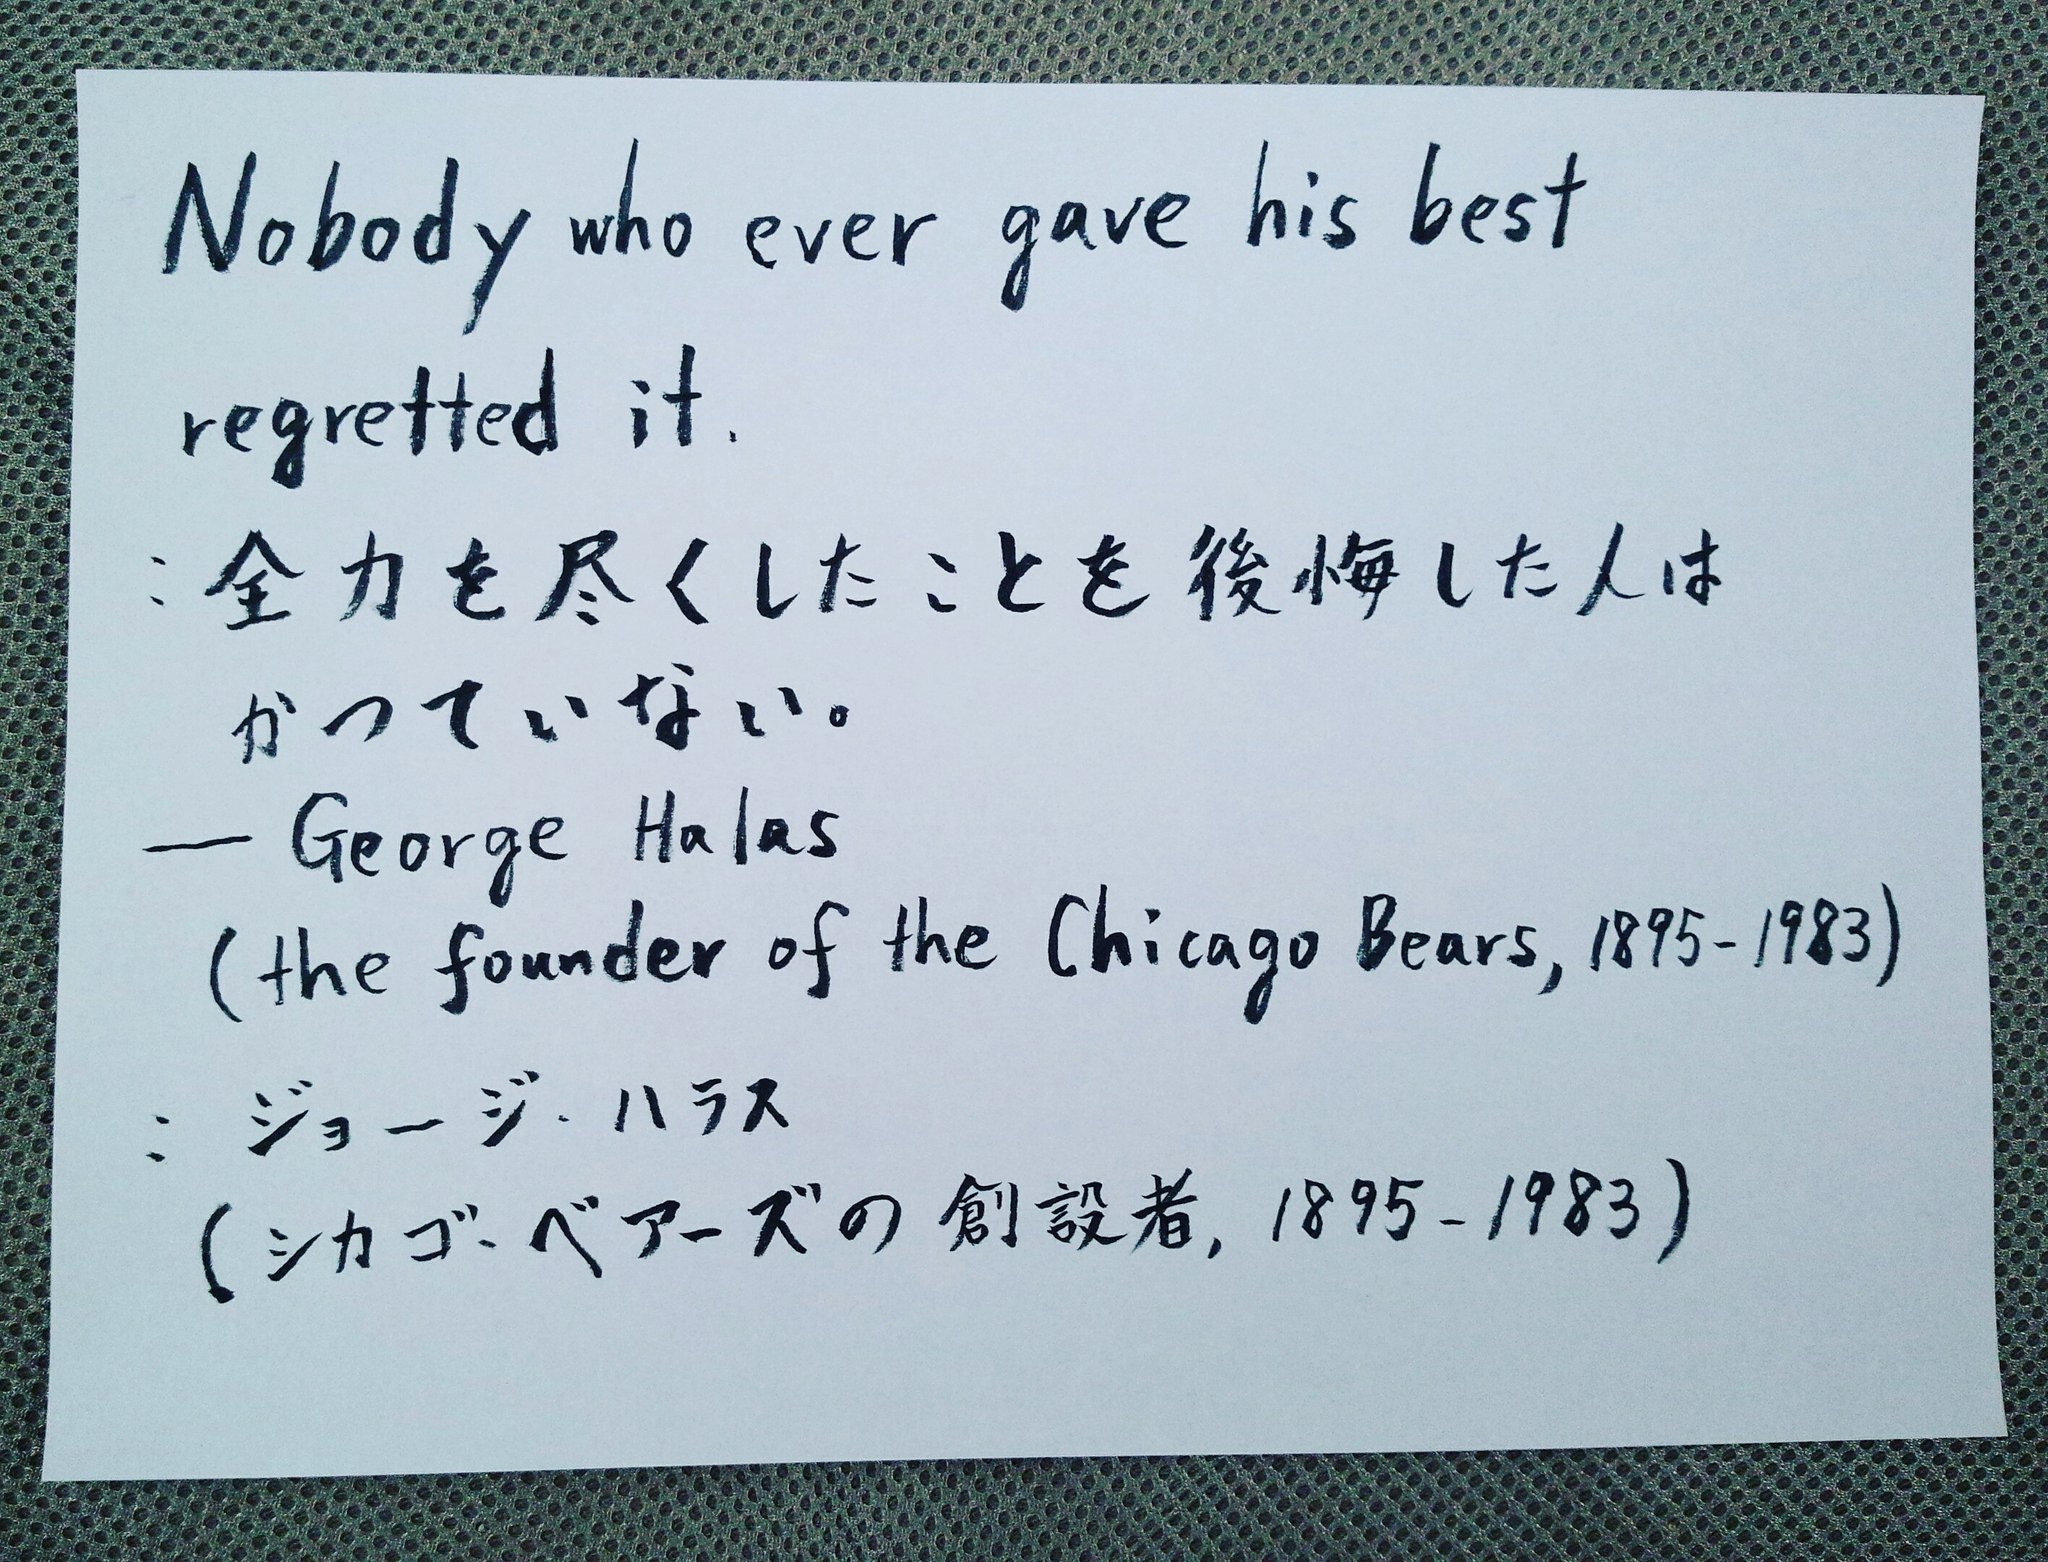 Nobody who ever gave his best
regretted it.
: 全力を尽くしたことを後悔した人は
かつていない。
— George Halas
(the founder of the Chicago Bears, 1895-1983)
: ジョージ・ハラス
(シカゴ・ベアーズの創設者, 1895-1983)